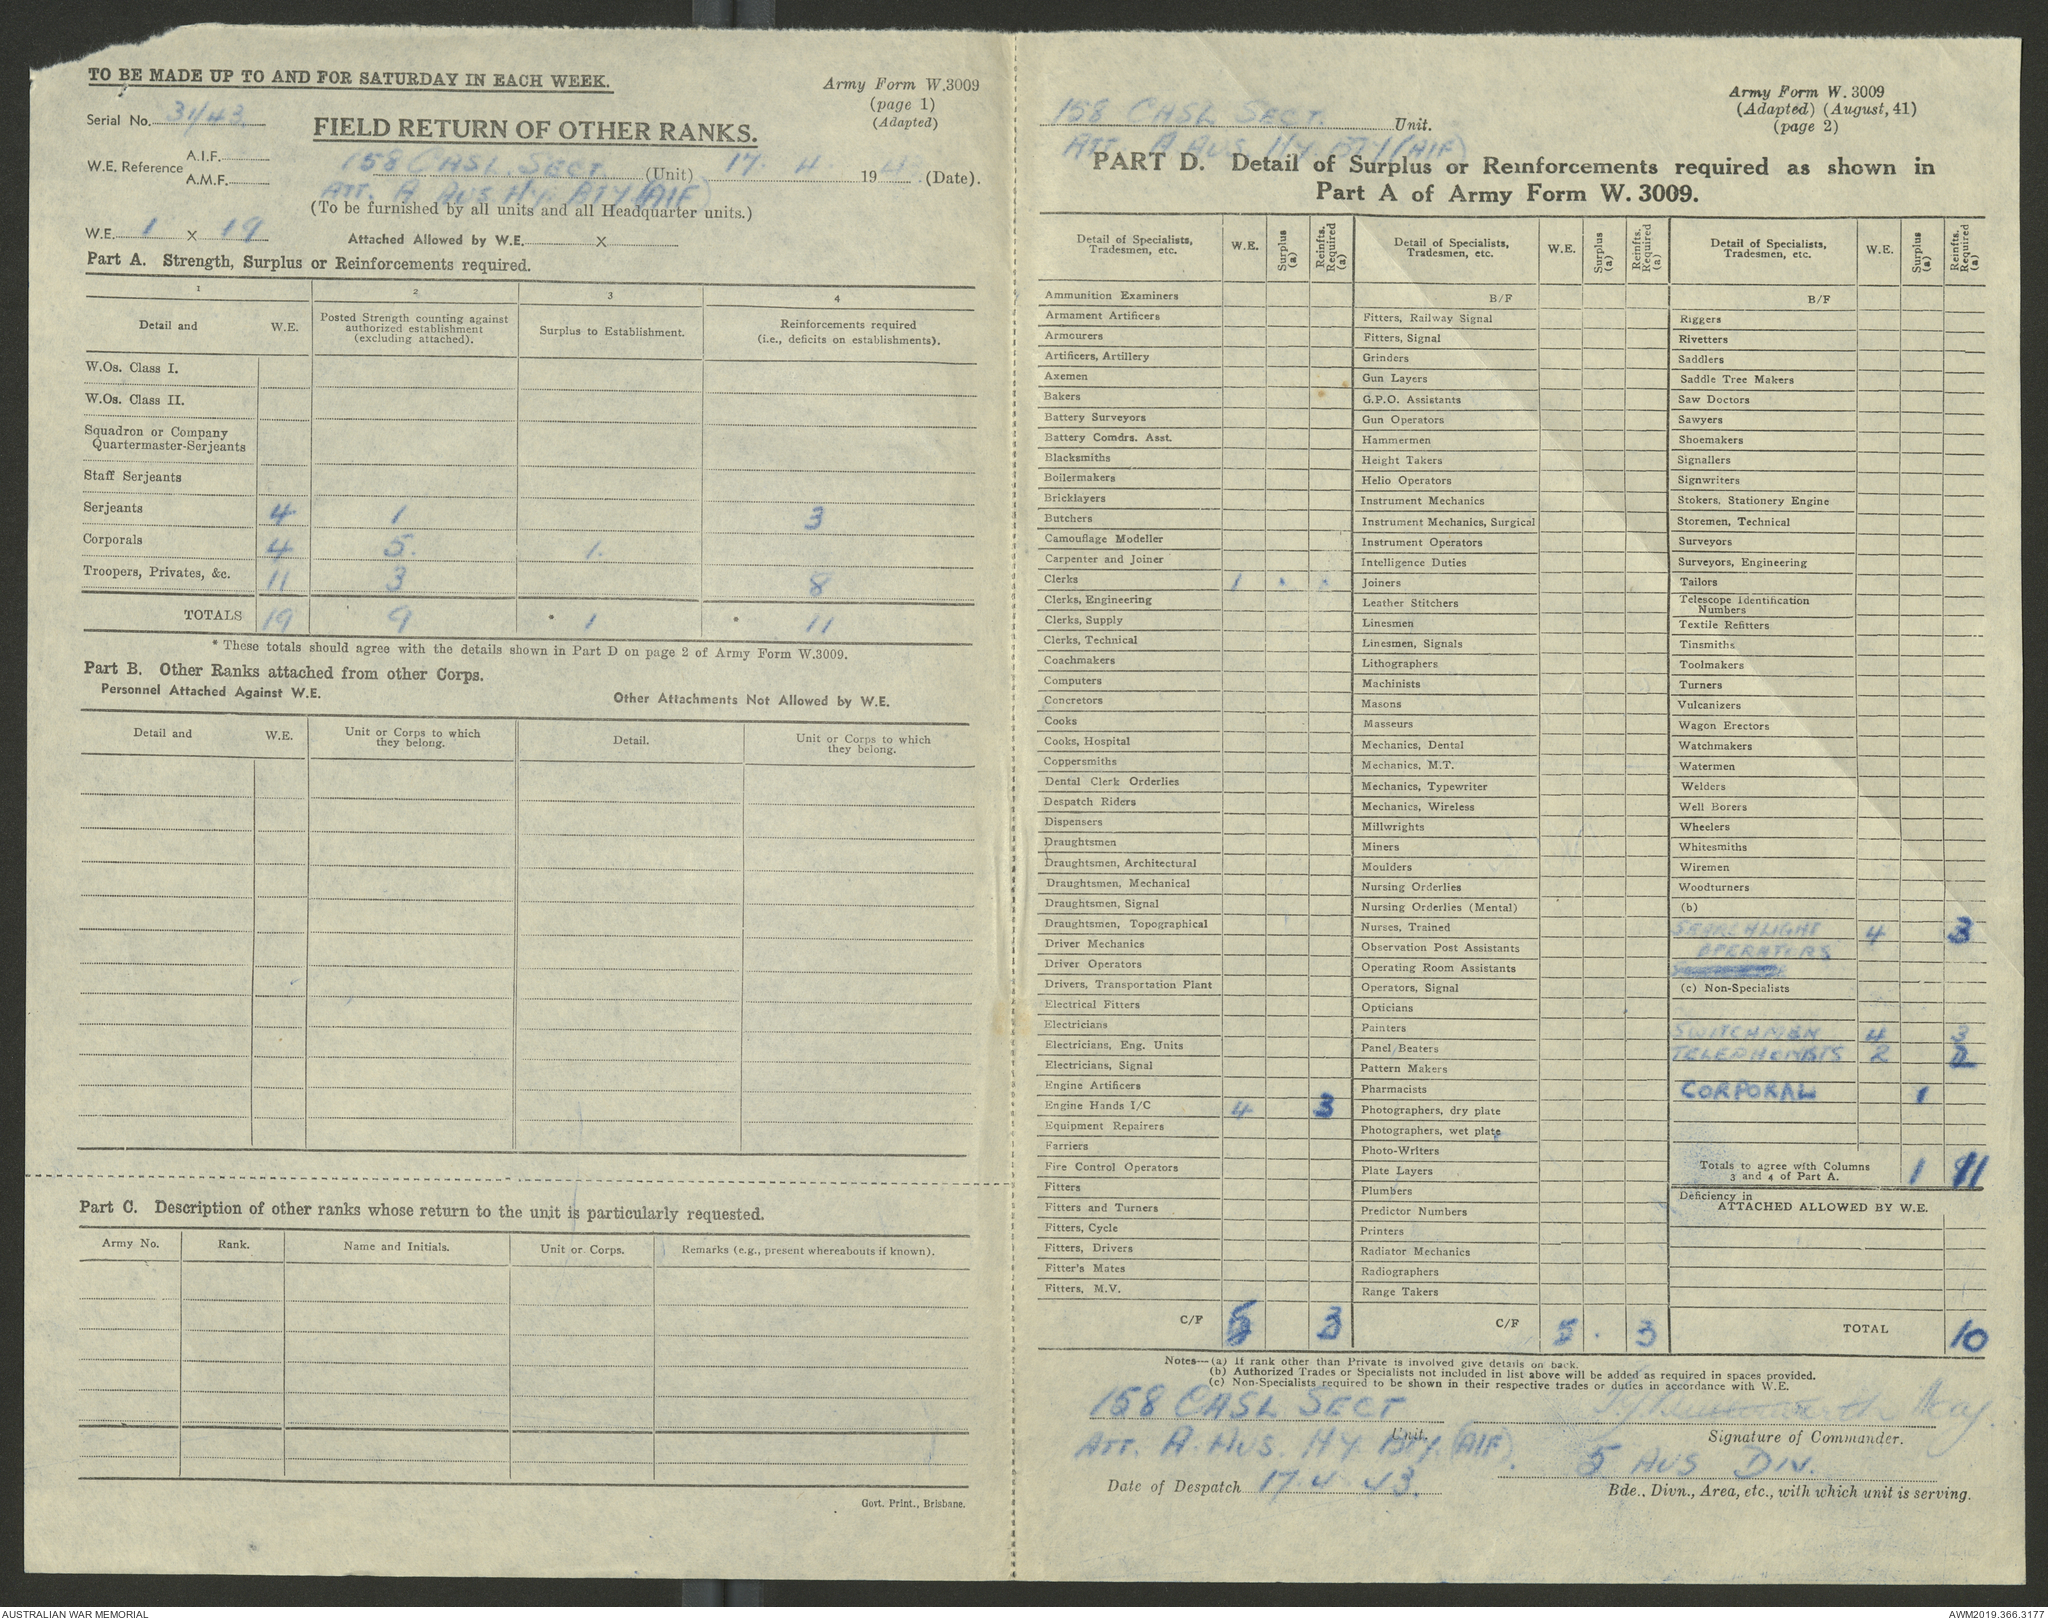 TO BE MADE UP TO AND FOR SATURDAY IN EACH WEEK.
Army Form W.3009
(page 1)
(Adapted)
Serial No. 31/43
FIELD RETURN OF OTHER RANKS.
W.E. Reference A.I.F.
A.M.F.
158 CASL. SECT. (Unit) 17. 4 194 (Date).
ATT. A AUS HY. BTY (AIF)
(To be furnished by all units and all Headquarter units.)
W.E. 1 X 19 Attached Allowed by W.E. X
Part A. Strength, Surplus or Reinforcements required.
1 2 3 4
Detail and W.E. Posted Strength counting against authorized establishment (excluding attached). Surplus to Establishment. Reinforcements required (i.e., deficits on establishments).
W.Os. Class I.
W.Os. Class II.
Squadron or Company
Quartermaster-Serjeants
Staff Serjeants
Serjeants 4 1 3
Corporals 4 5. 1.
Troopers, Privates, &c. 11 3 8
TOTALS 19 9 * 1 * 11
* These totals should agree with the details shown in Part D on page 2 of Army Form W.3009.
Part B. Other Ranks attached from other Corps.
Personnel Attached Against W.E. Other Attachments Not Allowed by W.E.
Detail and W.E. Unit or Corps to which they belong. Detail. Unit or Corps to which they belong.
Part C. Description of other ranks whose return to the unit is particularly requested.
Army No. Rank. Name and Initials. Unit or Corps. Remarks (e.g., present whereabouts if known).
Govt. Print., Brisbane.
158 CASL SECT. Unit.
ATT. A AUS HY. BTY (AIF)
Army Form W. 3009
(Adapted) (August, 41)
(page 2)
PART D. Detail of Surplus or Reinforcements required as shown in
Part A of Army Form W. 3009.
Detail of Specialists, Tradesmen, etc. W.E. Surplus (a) Reinfts. Required (a)
Ammunition Examiners
Armament Artificers
Armourers
Artificers, Artillery
Axemen
Bakers
Battery Surveyors
Battery Comdrs. Asst.
Blacksmiths
Boilermakers
Bricklayers
Butchers
Camouflage Modeller
Carpenter and Joiner
Clerks 1 . .
Clerks, Engineering
Clerks, Supply
Clerks, Technical
Coachmakers
Computers
Concretors
Cooks
Cooks, Hospital
Coppersmiths
Dental Clerk Orderlies
Despatch Riders
Dispensers
Draughtsmen
Draughtsmen, Architectural
Draughtsmen, Mechanical
Draughtsmen, Signal
Draughtsmen, Topographical
Driver Mechanics
Driver Operators
Drivers, Transportation Plant
Electrical Fitters
Electricians
Electricians, Eng. Units
Electricians, Signal
Engine Artificers
Engine Hands I/C 4 3
Equipment Repairers
Farriers
Fire Control Operators
Fitters
Fitters and Turners
Fitters, Cycle
Fitters, Drivers
Fitter's Mates
Fitters, M.V.
C/F 5 3
Detail of Specialists, Tradesmen, etc. W.E. Surplus (a) Reinfts. Required (a)
B/F
Fitters, Railway Signal
Fitters, Signal
Grinders
Gun Layers
G.P.O. Assistants
Gun Operators
Hammermen
Height Takers
Helio Operators
Instrument Mechanics
Instrument Mechanics, Surgical
Instrument Operators
Intelligence Duties
Joiners
Leather Stitchers
Linesmen
Linesmen, Signals
Lithographers
Machinists
Masons
Masseurs
Mechanics, Dental
Mechanics, M.T.
Mechanics, Typewriter
Mechanics, Wireless
Millwrights
Miners
Moulders
Nursing Orderlies
Nursing Orderlies (Mental)
Nurses, Trained
Observation Post Assistants
Operating Room Assistants
Operators, Signal
Opticians
Painters
Panel Beaters
Pattern Makers
Pharmacists
Photographers, dry plate
Photographers, wet plate
Photo-Writers
Plate Layers
Plumbers
Predictor Numbers
Printers
Radiator Mechanics
Radiographers
Range Takers
C/F 5 . 3
Detail of Specialists, Tradesmen, etc. W.E. Surplus (a) Reinfts. Required (a)
B/F
Riggers
Rivetters
Saddlers
Saddle Tree Makers
Saw Doctors
Sawyers
Shoemakers
Signallers
Signwriters
Stokers, Stationery Engine
Storemen, Technical
Surveyors
Surveyors, Engineering
Tailors
Telescope Identification
Numbers
Textile Refitters
Tinsmiths
Toolmakers
Turners
Vulcanizers
Wagon Erectors
Watchmakers
Watermen
Welders
Well Borers
Wheelers
Whitesmiths
Wiremen
Woodturners
(b)
SEARCHLIGHT 4 3
OPERATORS
(c) Non-Specialists
SWITCHMEN 4 3
TELEPHONISTS 2 2
CORPORAL 1
Totals to agree with Columns 3 and 4 of Part A. 1 11
Deficiency in
ATTACHED ALLOWED BY W.E.
TOTAL 10
Notes—(a) If rank other than Private is involved give details on back.
(b) Authorized Trades or Specialists not included in list above will be added as required in spaces provided.
(c) Non-Specialists required to be shown in their respective trades or duties in accordance with W.E.
158 CASL SECT
Unit.
ATT. A. AUS. HY. BTY. (AIF).
Maj.
Signature of Commander.
5 AUS DIV.
Date of Despatch 17.4.43.
Bde., Divn., Area, etc., with which unit is serving.
AUSTRALIAN WAR MEMORIAL
AWM2019.366.3177